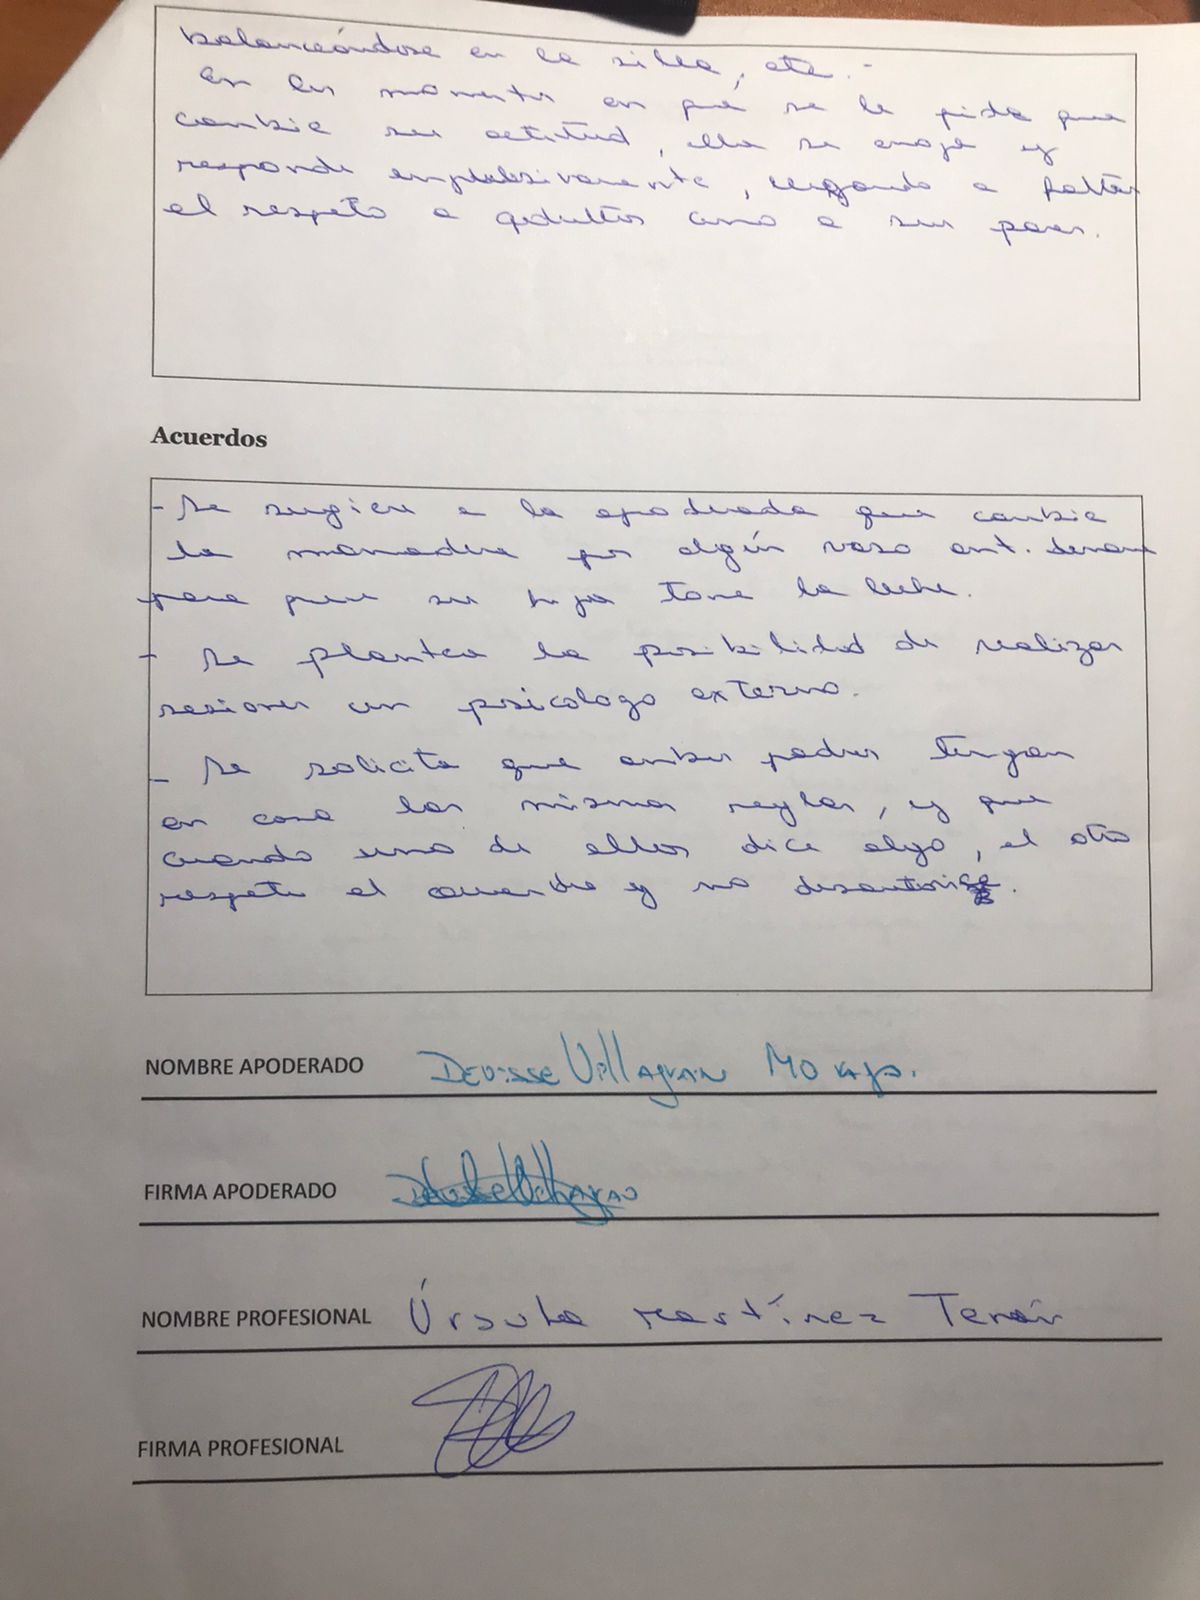 balanceándose en la silla, etc.-
En los momentos en que se le pide que
cambie su actitud, ella se enoja y
responde, llegando a faltar
el respeto a adultos como a sus pares.
Acuerdos
- Se sugiere a la apoderada que cambie
la mamadera por algún vaso ant. derrame
para que su hija tome la leche.
- Se plantea la posibilidad de realizar
sesiones con psicologo externo.
- Se solicita que ambos padres tengan
en casa las mismas reglas, y que
cuando uno de ellos dice algo, el otro
respete el acuerdo y no desautorice.
NOMBRE APODERADO Denisse Villagran
FIRMA APODERADO
NOMBRE PROFESIONAL Úrsula Martínez Terán
FIRMA PROFESIONAL